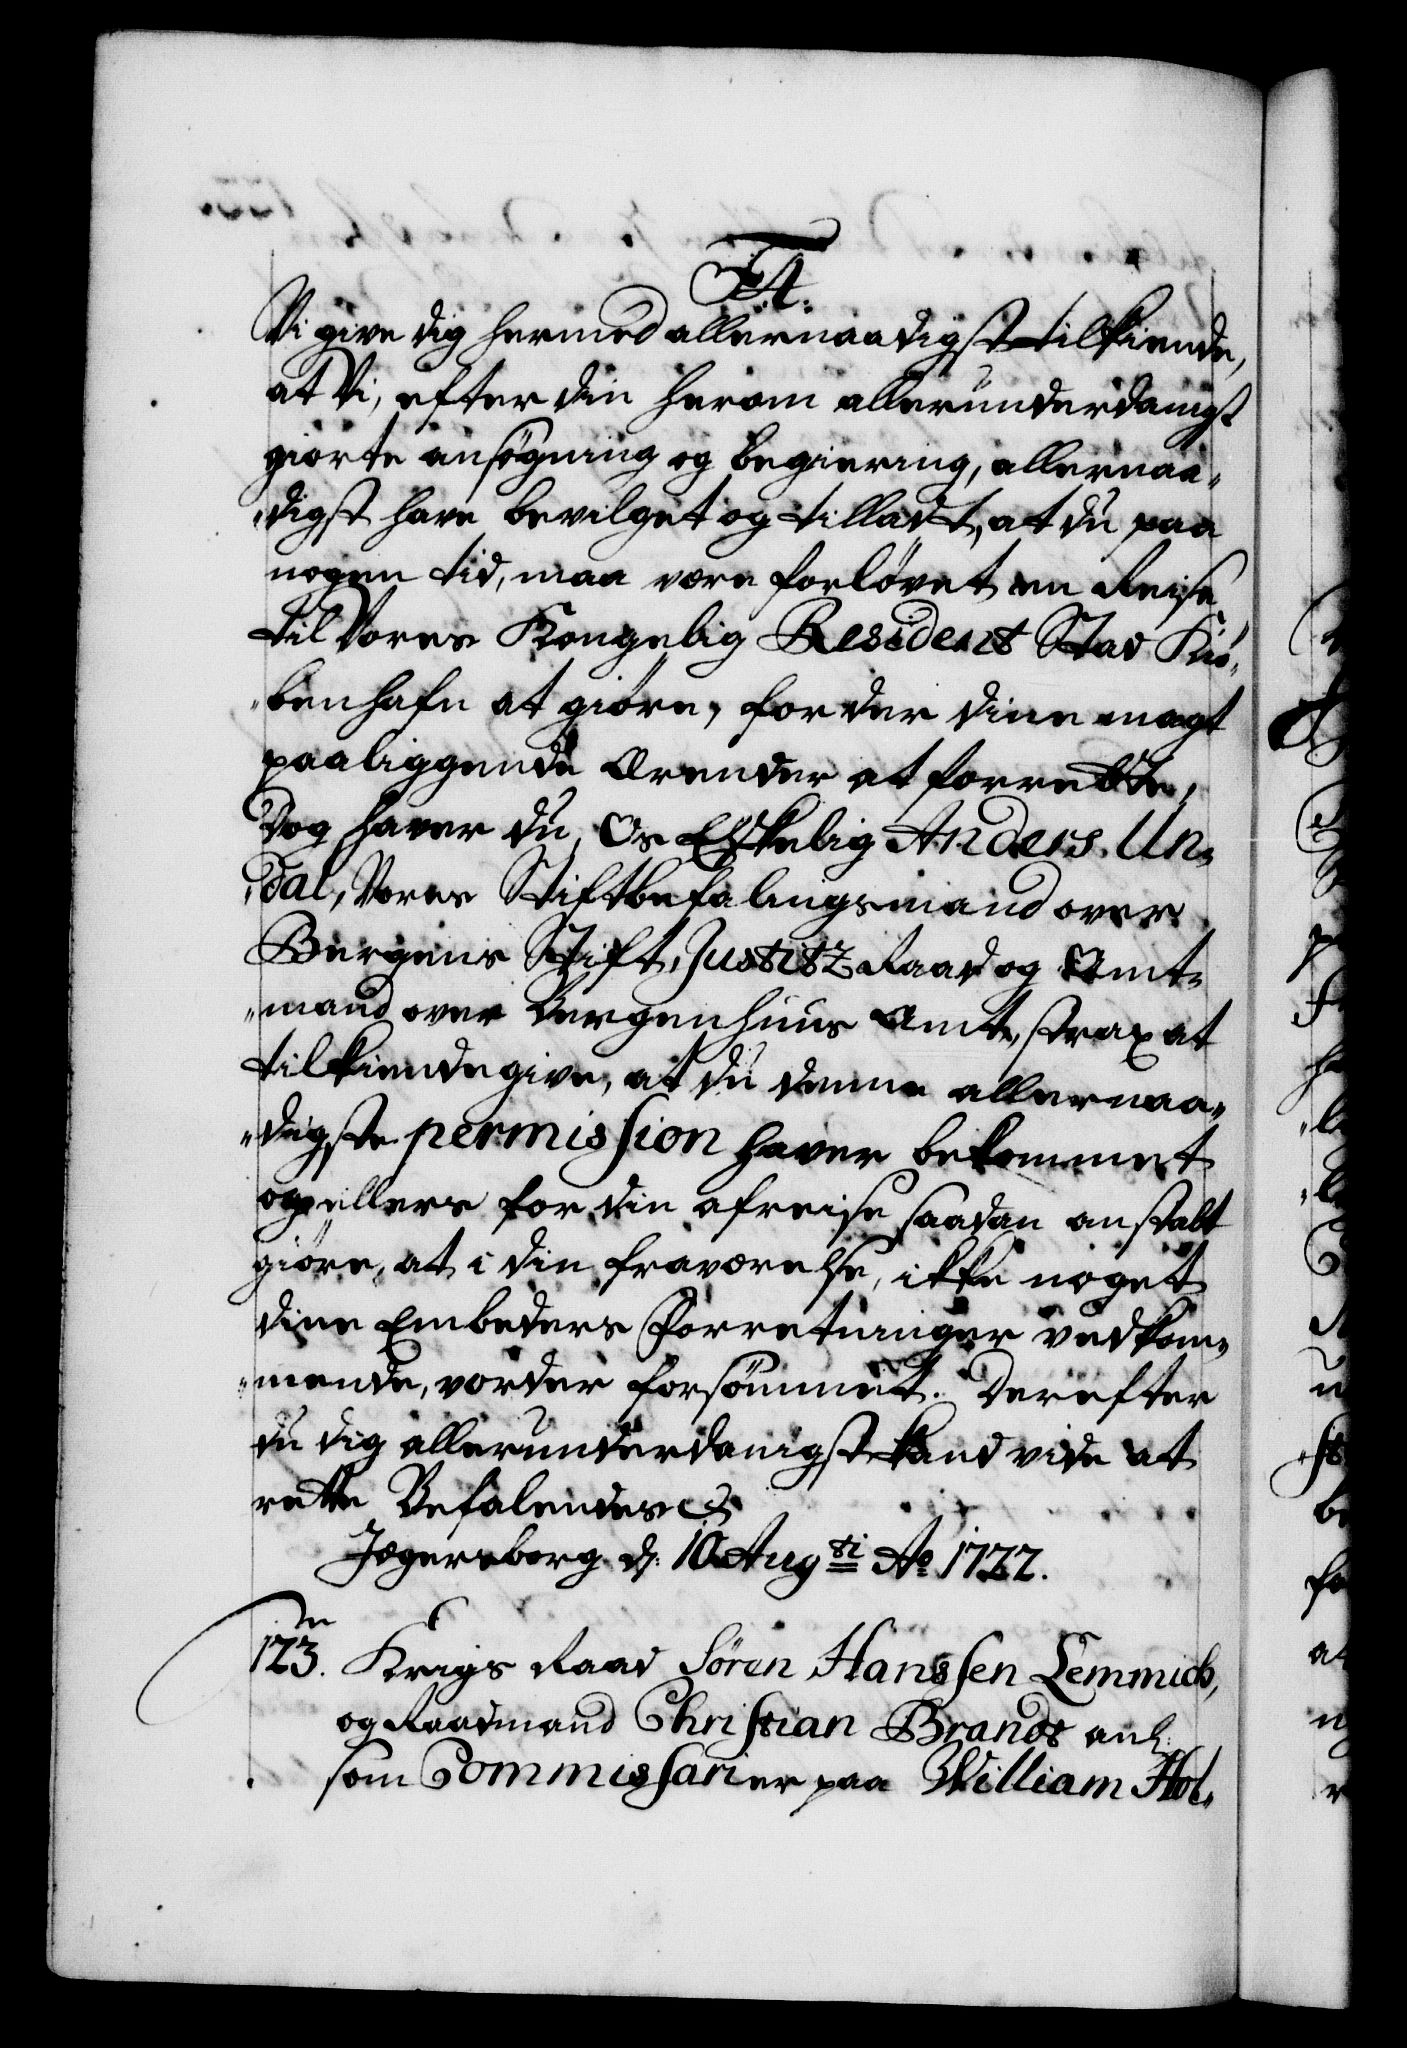 F4.
Vi give dig hermed allernaadigst tilkiende,
at Vi, efter din herom allerunderdanigst
giorte ansøgning og begiering, allernaa-
digst have bevilget og tilladt, at du paa
nogen tid, maa være forløvet en Reise
til Vores Kongelig Residents Stad Kiø-
benhafn at giøre, for der dine magt
paaliggende Ærender at forrette,
Dog haver du, Os Elskelig Anders Un-
dal, Vores Stiftbefalingsmand over
Bergens Stift, Justitz Raad og Amt-
mand over Bergenhuus Amt, strax at
tilkiendegive, at du denne allernaa-
digste permission haver bekommet
og ellers for din afreise saadan anstalt
giøre, at i din fraværelse, ikke noget
dine Embeders Forretninger vedkom-
mende, vorder forsømmet. Derefter
du dig allerunderdanigst kand vide at
rette Befalendes
Jægersborg d: 10 Augsti Ao 1722.
123. Krigs Raad Sören Hanssen Lemmich,
og Raadmand Christian Brandt anl:
som Commissarier paa William Hol-